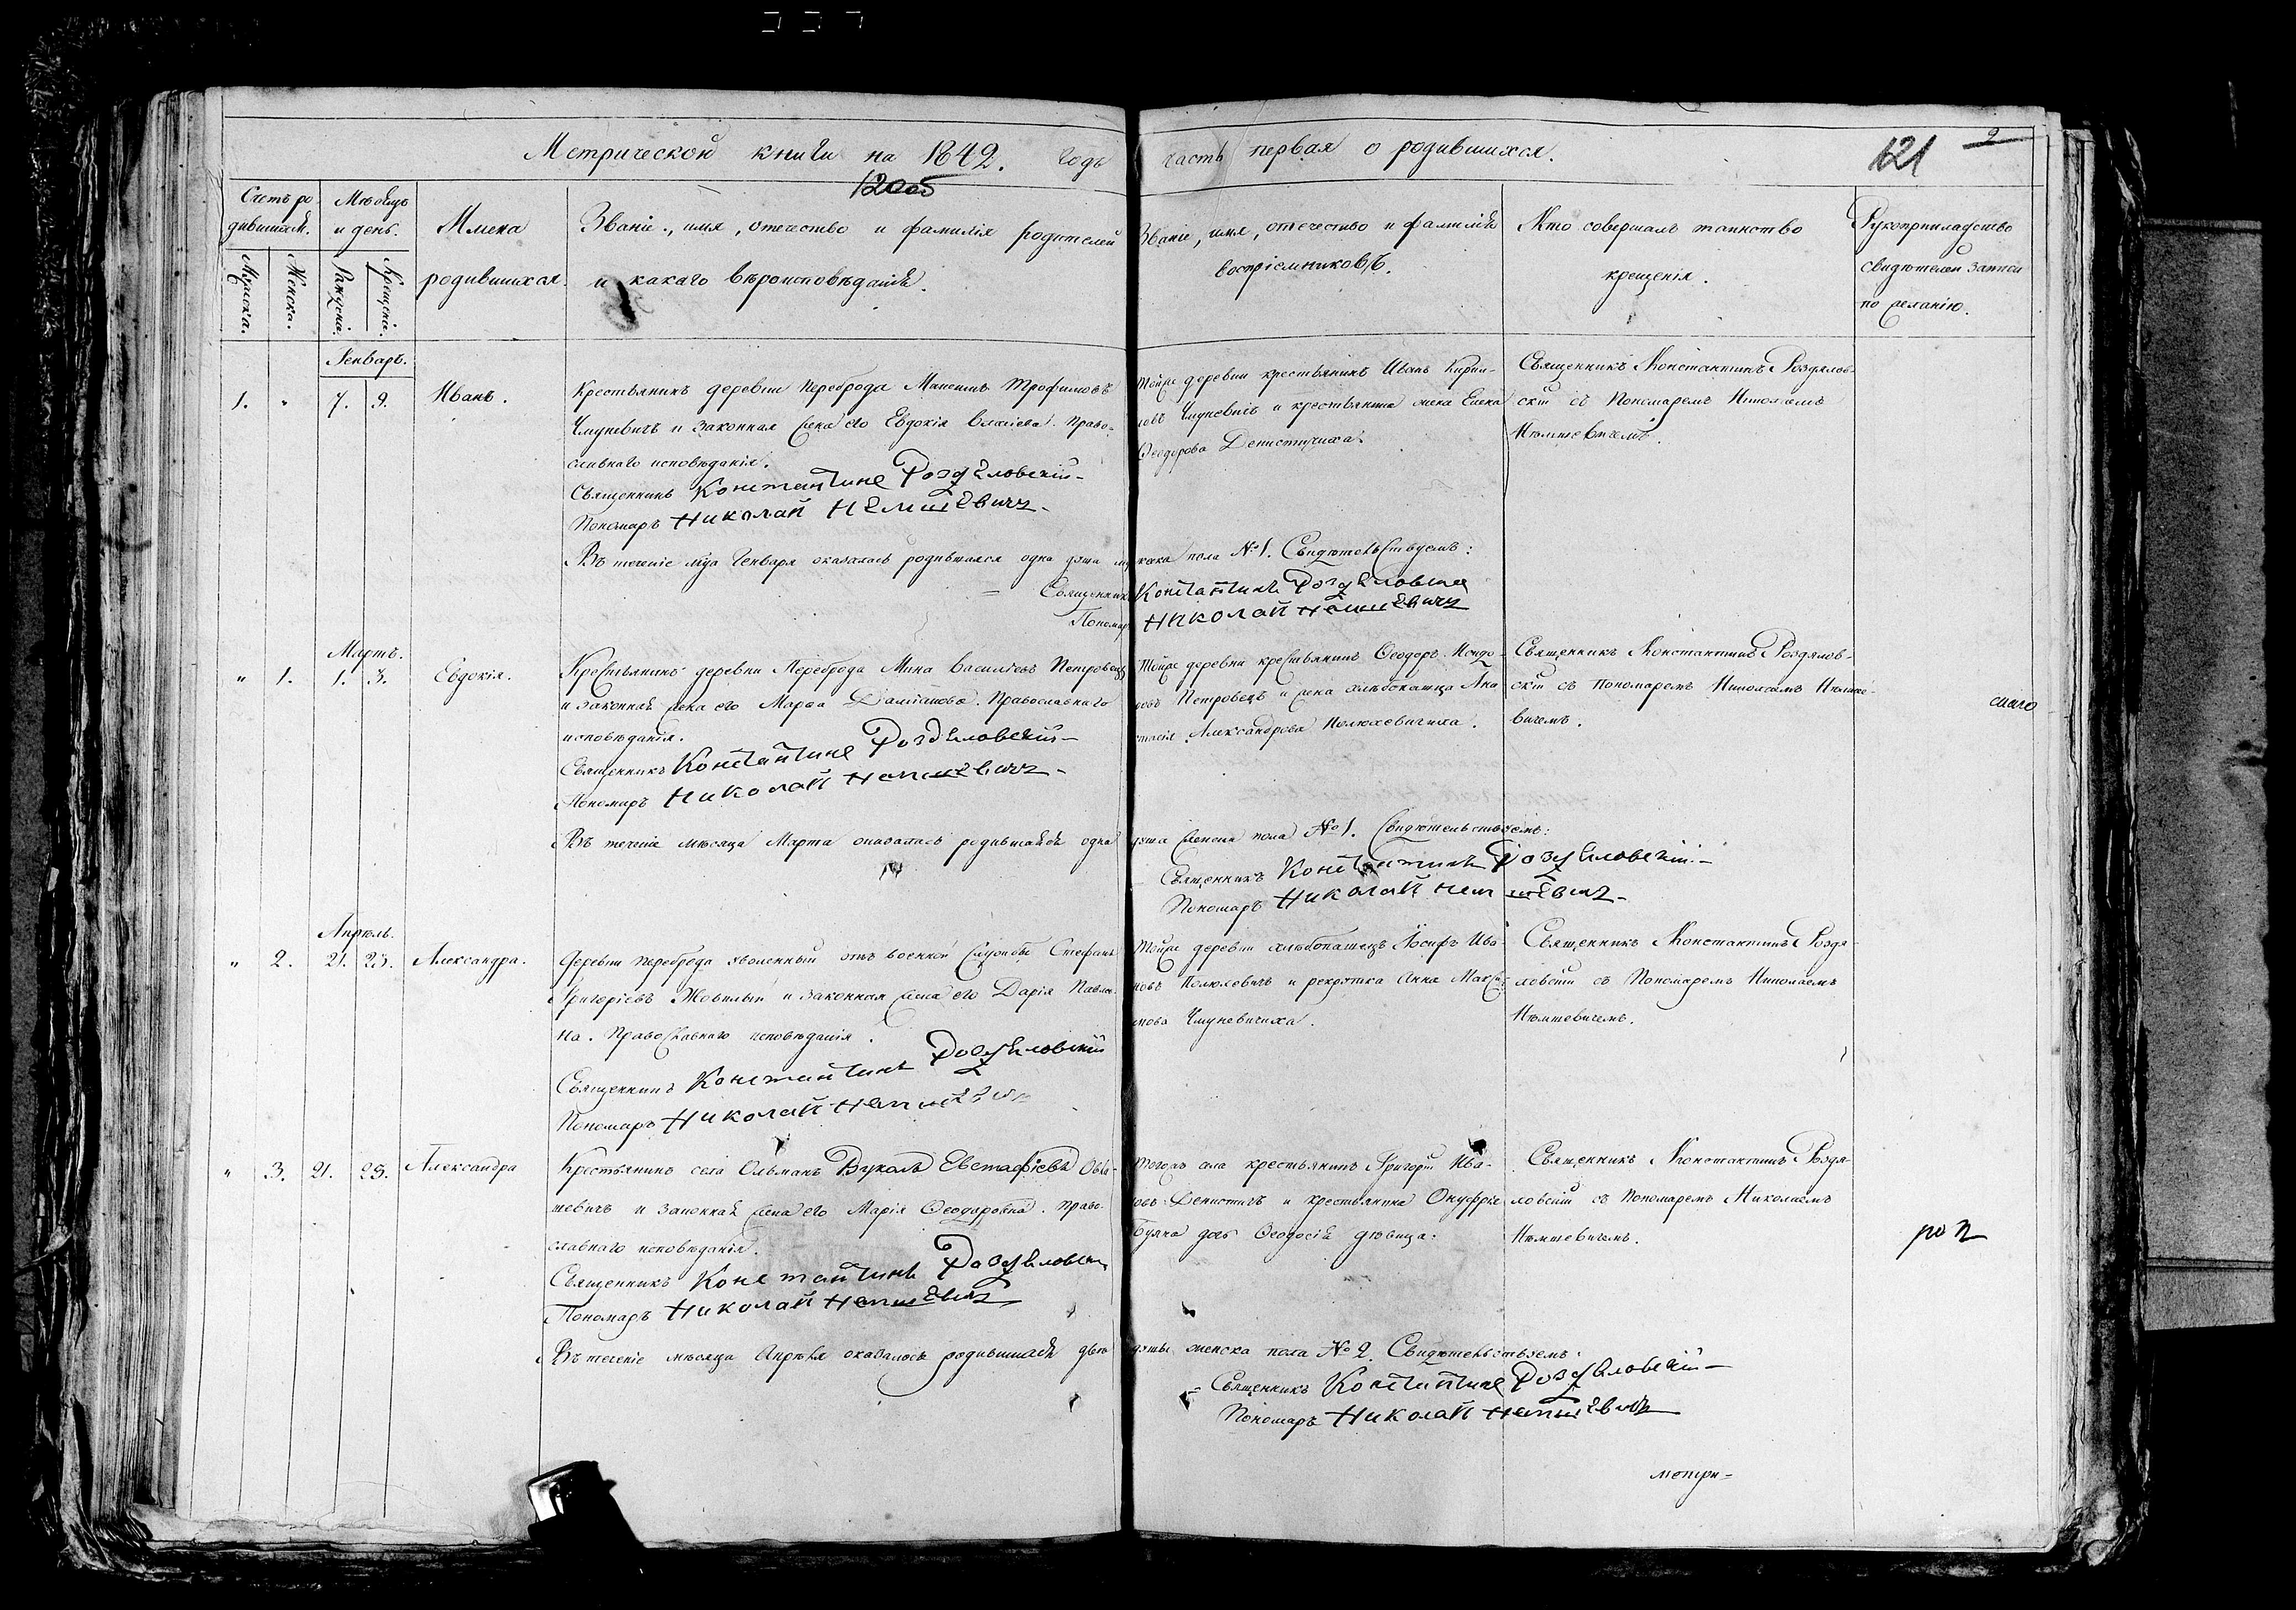 Метрической книги на 1842. годъ часть первая о родившихся.
120об
121
2
Счетъ ро
дившихся.
Мѣсяцъ
и день.
Мужска.
Женска.
Рожденія.
Крещенія.
Имена
родившихся.
Званіе, имя, отечество и фамилія родителей
и какаго вѣроисповѣданія.
Званіе, имя, отечество и фамилія
воспріемниковъ.
Кто совершалъ таинство
крещенія.
Рукоприкладство
свидѣтелей записи
по желанію.
Генваръ.
1. " 7. 9. Иванъ.
Крестьянинъ деревни Переброда Трофимовъ
Чмуневичъ и законная жена его Евдокія Власіева. Право-
славнаго исповѣданія.
Священникъ Константинъ Роздѣловскій
Пономаръ Николай Немшевичъ
Тойже деревни крестьянинъ Иванъ Кирил-
ловъ Чмуневичъ и крестьянина жена Елена
Ѳеодорова Денистчиха.
Священникъ Константинъ Роздялов-
скій съ Пономаремъ Николаемъ
Нѣмшевичемъ.
Въ теченіе мца Генваря оказалась родившаяся одна дѣта мужска пола №1. Свидѣтельствуемъ:
Священникъ Константинъ Роздѣловскій
Пономаръ Николай Немшевичъ
Мартъ.
" 1. 1. 3. Евдокія.
Крестьянинъ деревни Переброда Мина Василіевъ Петровецъ
и законная жена его Марѳа Даміанова. Православнаго
исповѣданія.
Священникъ Константинъ Роздѣловскій
Пономаръ Николай Немшевичъ
Тойже деревни крестьянинъ Ѳеодоръ
Петровецъ и жена хлѣбопашца Ана
стасія Александрова Полюхевичиха.
Священникъ Константинъ Роздялов-
скій съ Пономаремъ Николаемъ Нѣмше-
вичемъ.
Въ теченіе мѣсяца Марта оказалась родившаяся одна дѣта женска пола №1. Свидѣтельствуемъ:
Священникъ Константинъ Роздѣловскій
Пономаръ Николай Немшевичъ
Апрѣль.
" 2. 21. 23. Александра.
Деревни Переброда уволенный отъ военной службы Стефанъ
Григоріевъ Жовнлый и законная жена его Дарія Павло-
на. Православнаго исповѣданія.
Священникъ Константинъ Роздѣловскій
Пономаръ Николай Немшевичъ
Тойже деревни хлѣбопашецъ Іосифъ Ива-
новъ Полюхевичъ и рекрутка Анна Макси-
мова Чмуневичиха.
Священникъ Константинъ Роздя-
ловскій съ Пономаремъ Николаемъ
Нѣмшевичемъ.
" 3. 21. 23. Александра
Крестьянинъ села Ольманъ Вуколъ Евстафіевъ
шевичъ и законная жена его Марія Ѳеодоровна. Право-
славнаго исповѣданія.
Священникъ Константинъ Роздѣловскій
Пономаръ Николай Немшевичъ
Тогожъ села крестьянинъ Григорій Ива-
новъ Денистичъ и крестьянина Онуфрія
дочь Ѳеодосія дѣвица.
Священникъ Константинъ Роздя-
ловскій съ Пономаремъ Николаемъ
Нѣмшевичемъ.
Въ теченіе мѣсяца Апрѣля оказалось родившихся двѣ дѣты женска пола №2. Свидѣтельствуемъ:
Священникъ Константинъ Роздѣловскій
Пономаръ Николай Немшевичъ
метри-